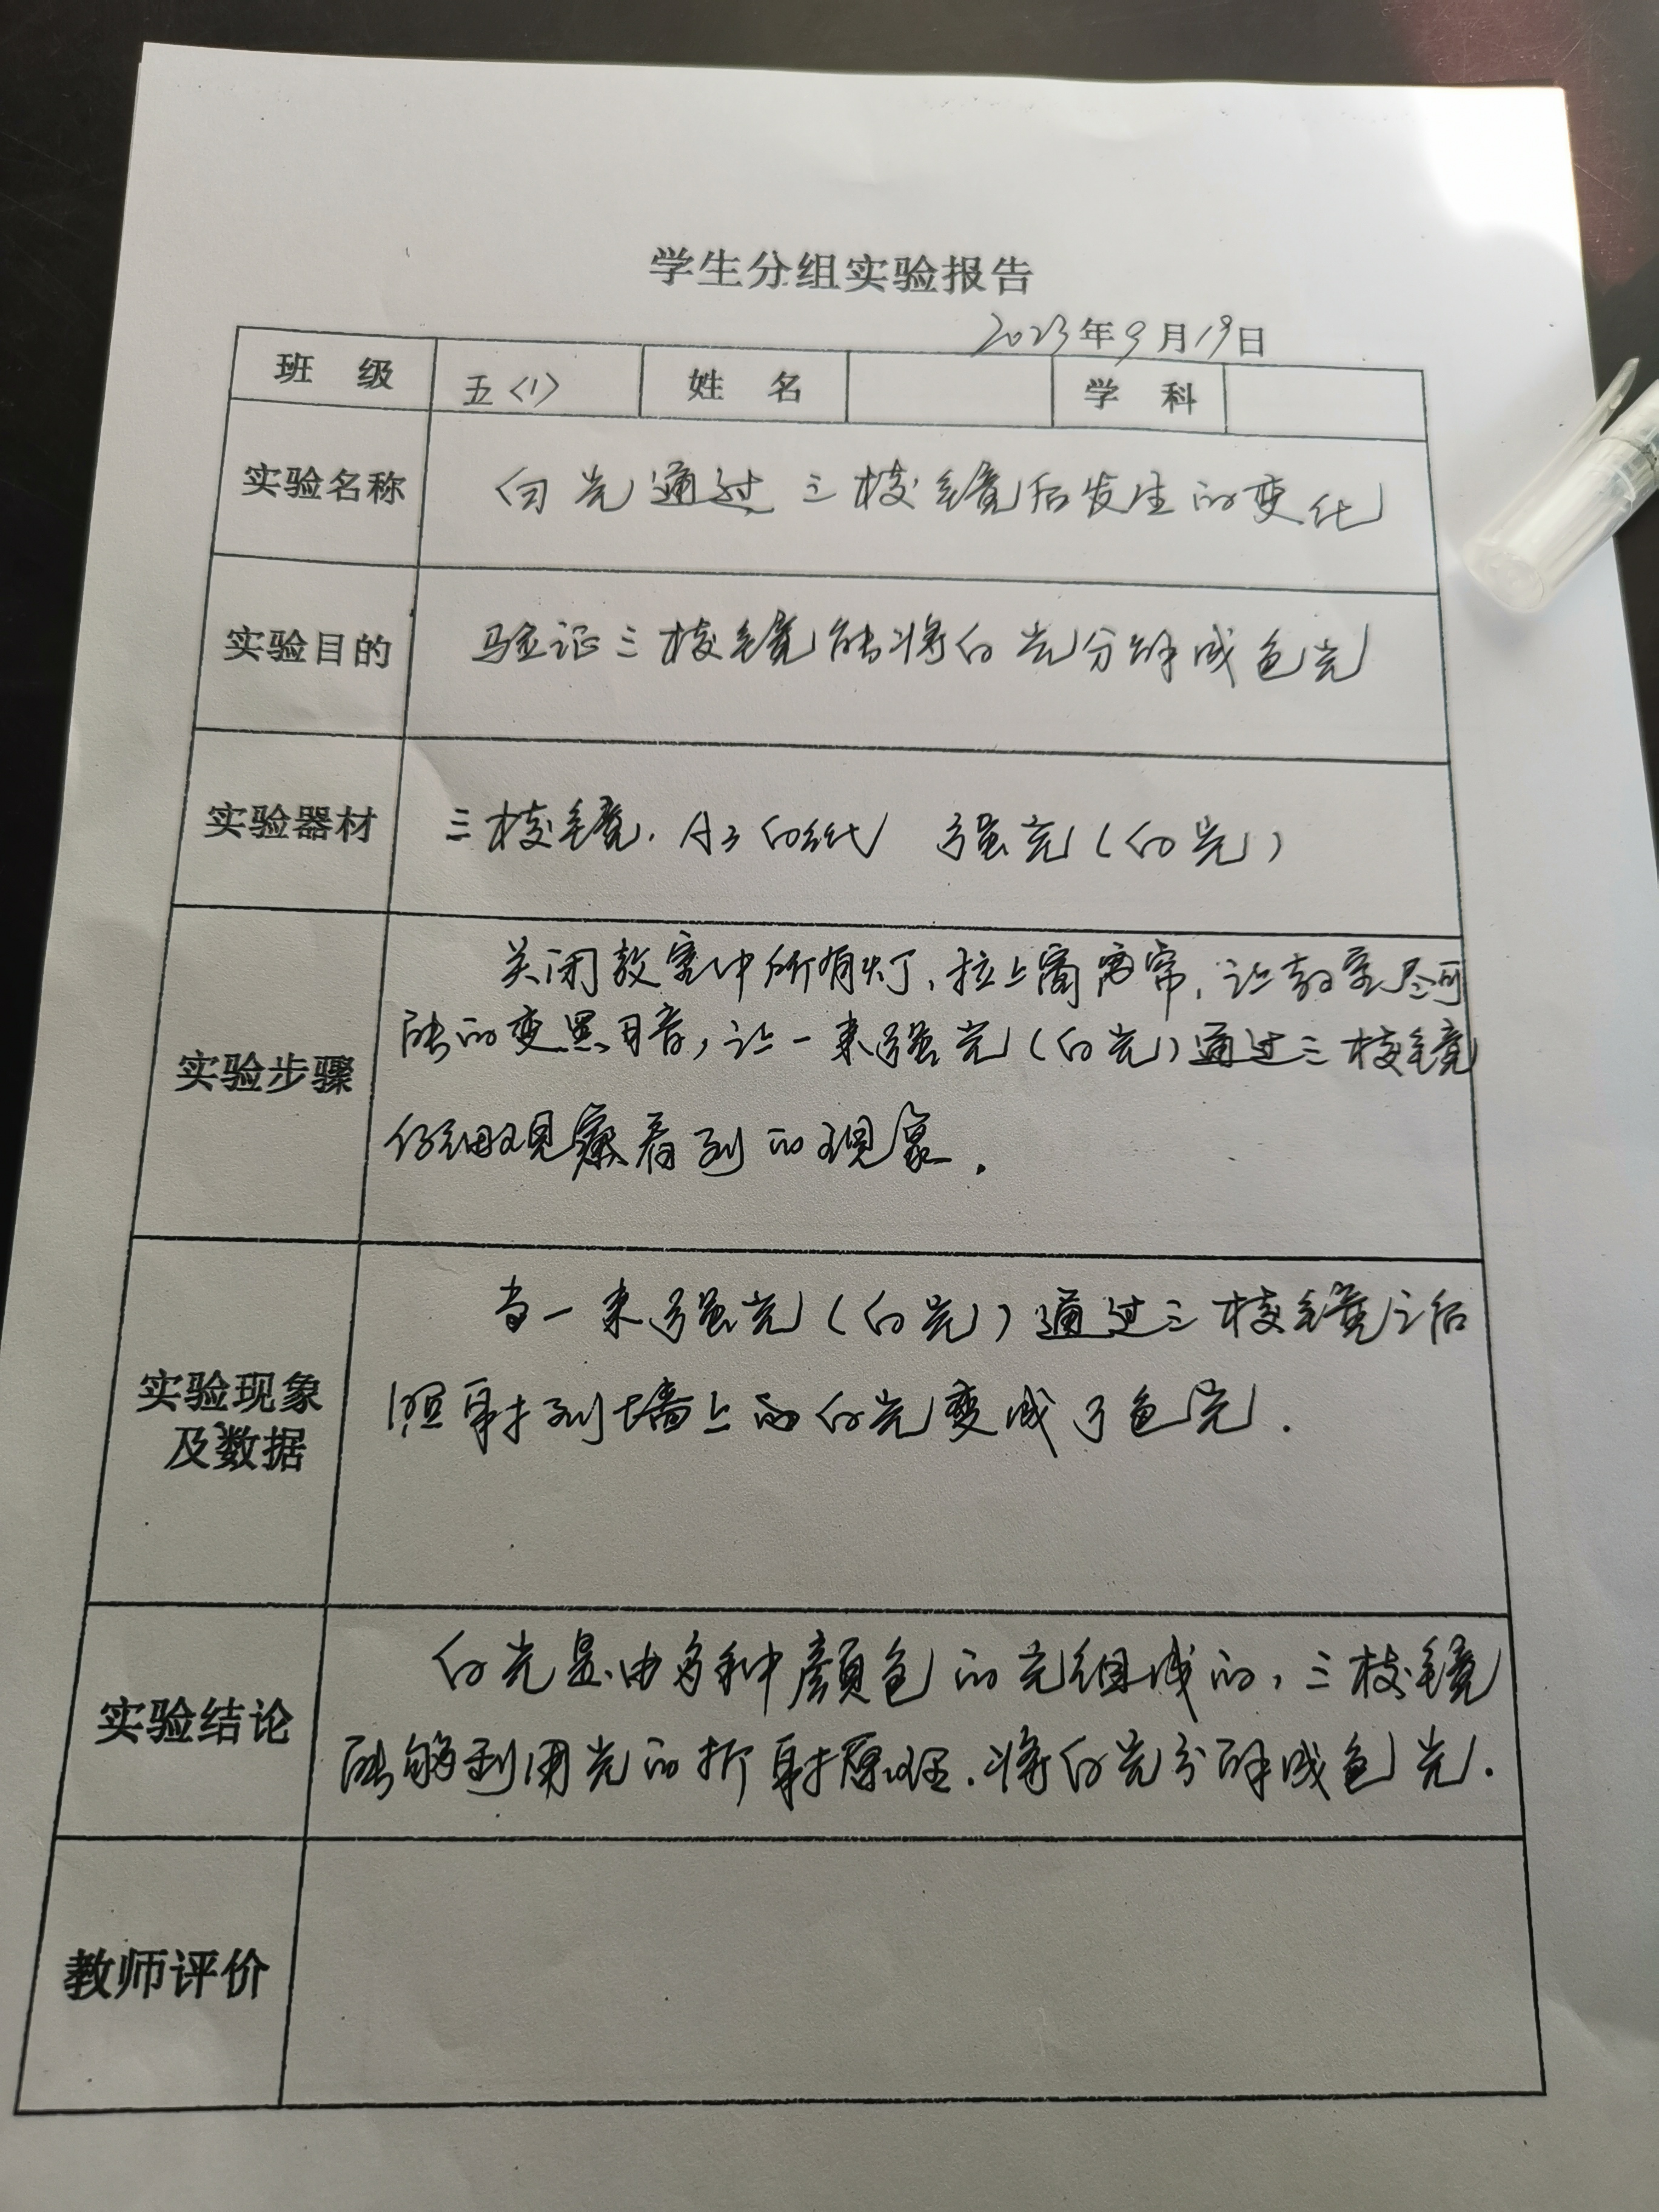 学生分组实验报告
2023年9月19日
班 级 五（1） 姓 名 学 科
实验名称 白光通过三棱镜后发生的变化
实验目的 验证三棱镜能将白光分解成色光
实验器材 三棱镜. A3白纸 强光（白光）
实验步骤
关闭教室中所有灯,拉上窗帘,让教室尽可
能的变黑暗,让一束强光（白光）通过三棱镜
仔细观察看到的现象.
实验现象
及数据
当一束强光（白光）通过三棱镜之后
照射到墙上的白光变成了色光.
实验结论
白光是由多种颜色的光组成的,三棱镜
能够利用光的折射原理.将白光分解成色光.
教师评价